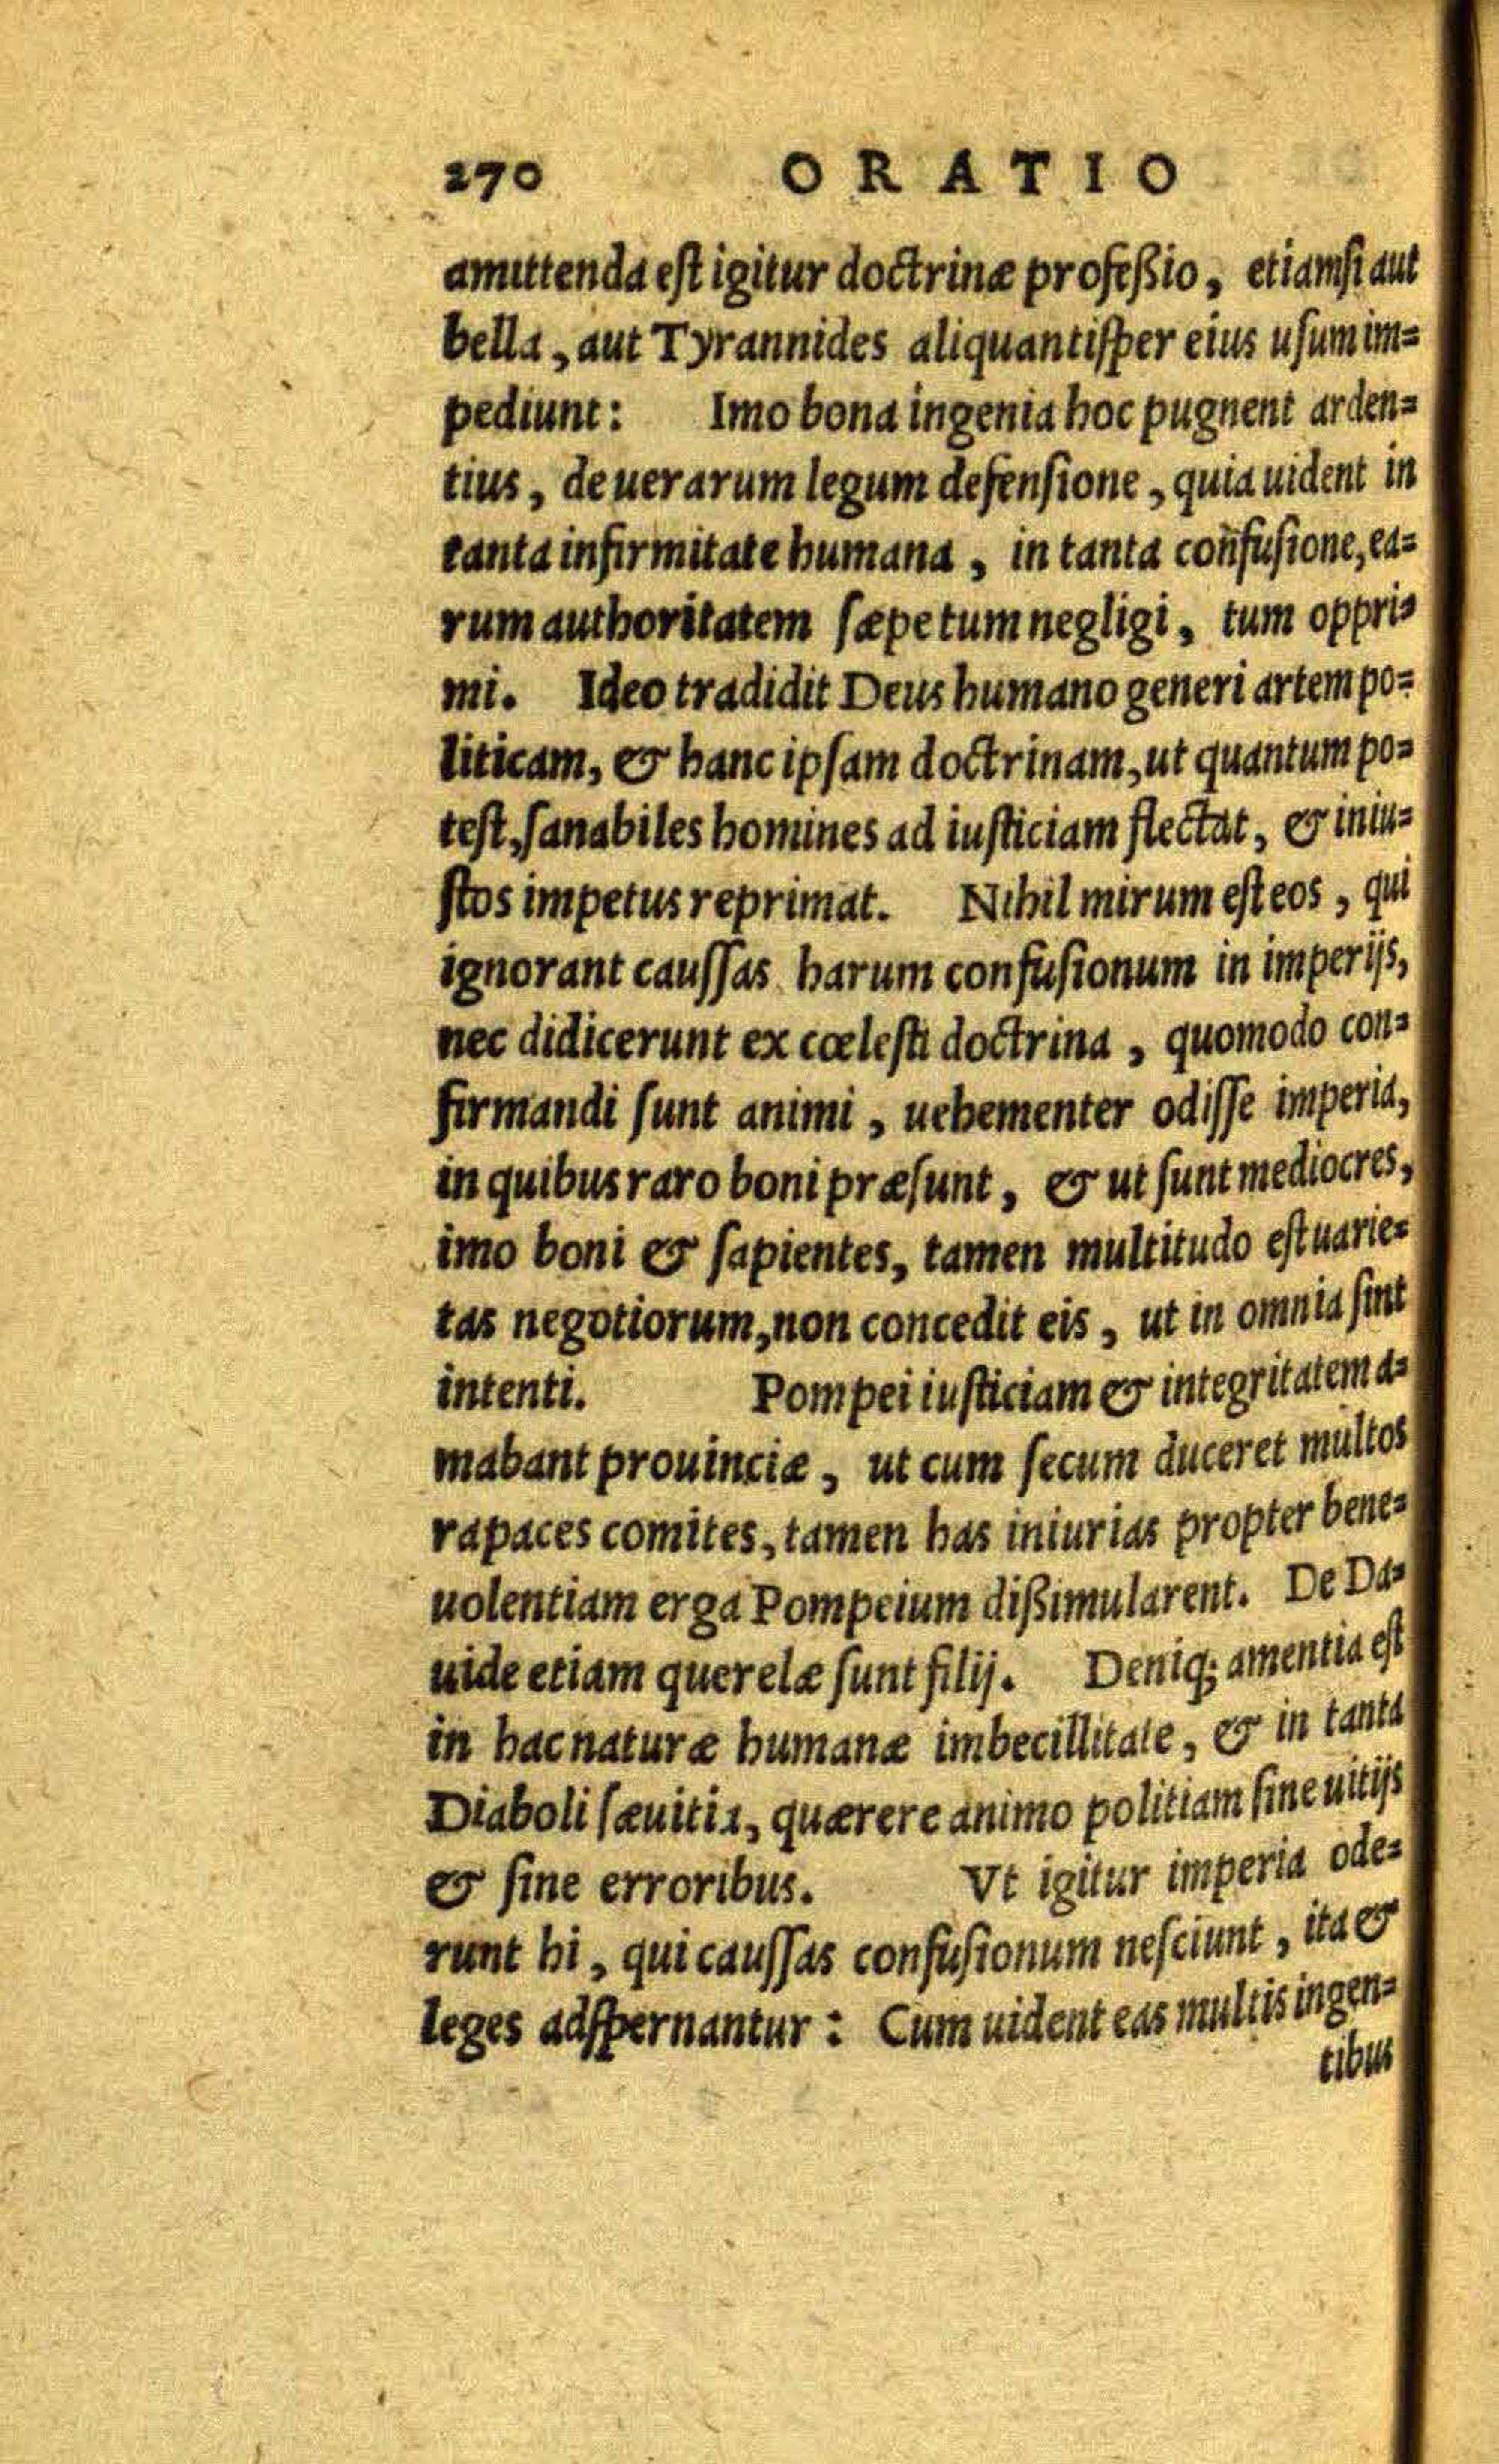 270 ORATIO
amittenda est igitur doctrinæ profeßio, etiamsi aut
bella, aut Tyrannides aliquantisper eius usum im=
pediunt: Imo bona ingenia hoc pugnent arden=
tius, de uerarum legum defensione, quia uident in
tanta infirmitate humana, in tanta confusione, ea=
rum authoritatem sæpe tum negligi, tum oppri=
mi. Ideo tradidit Deus humano generi artem po=
liticam, & hanc ipsam doctrinam, ut quantum po=
test, sanabiles homines ad iusticiam flectat, & iniu=
stos impetus reprimat. Nihil mirum est eos, qui
ignorant caussas harum confusionum in imperijs,
nec didicerunt ex cœlesti doctrina, quomodo con=
firmandi sunt animi, uehementer odisse imperia,
in quibus raro boni præsunt, & ut sunt mediocres,
imo boni & sapientes, tamen multitudo est uarie=
tas negotiorum, non concedit eis, ut in omnia sint
intenti. Pompei iusticiam & integritatem a=
mabant prouinciæ, ut cum secum duceret multos
rapaces comites, tamen has iniurias propter bene=
uolentiam erga Pompeium dißimularent. De Da=
uide etiam querelæ sunt filij. Deniq; amentia est
in hac naturæ humanæ imbecillitate, & in tanta
Diaboli sæuitia, quærere animo politiam sine uitijs
& sine erroribus. Vt igitur imperia ode=
runt hi, qui caussas confusionum nesciunt, ita &
leges adspernantur: Cum uident eas multis ingen=
tibus